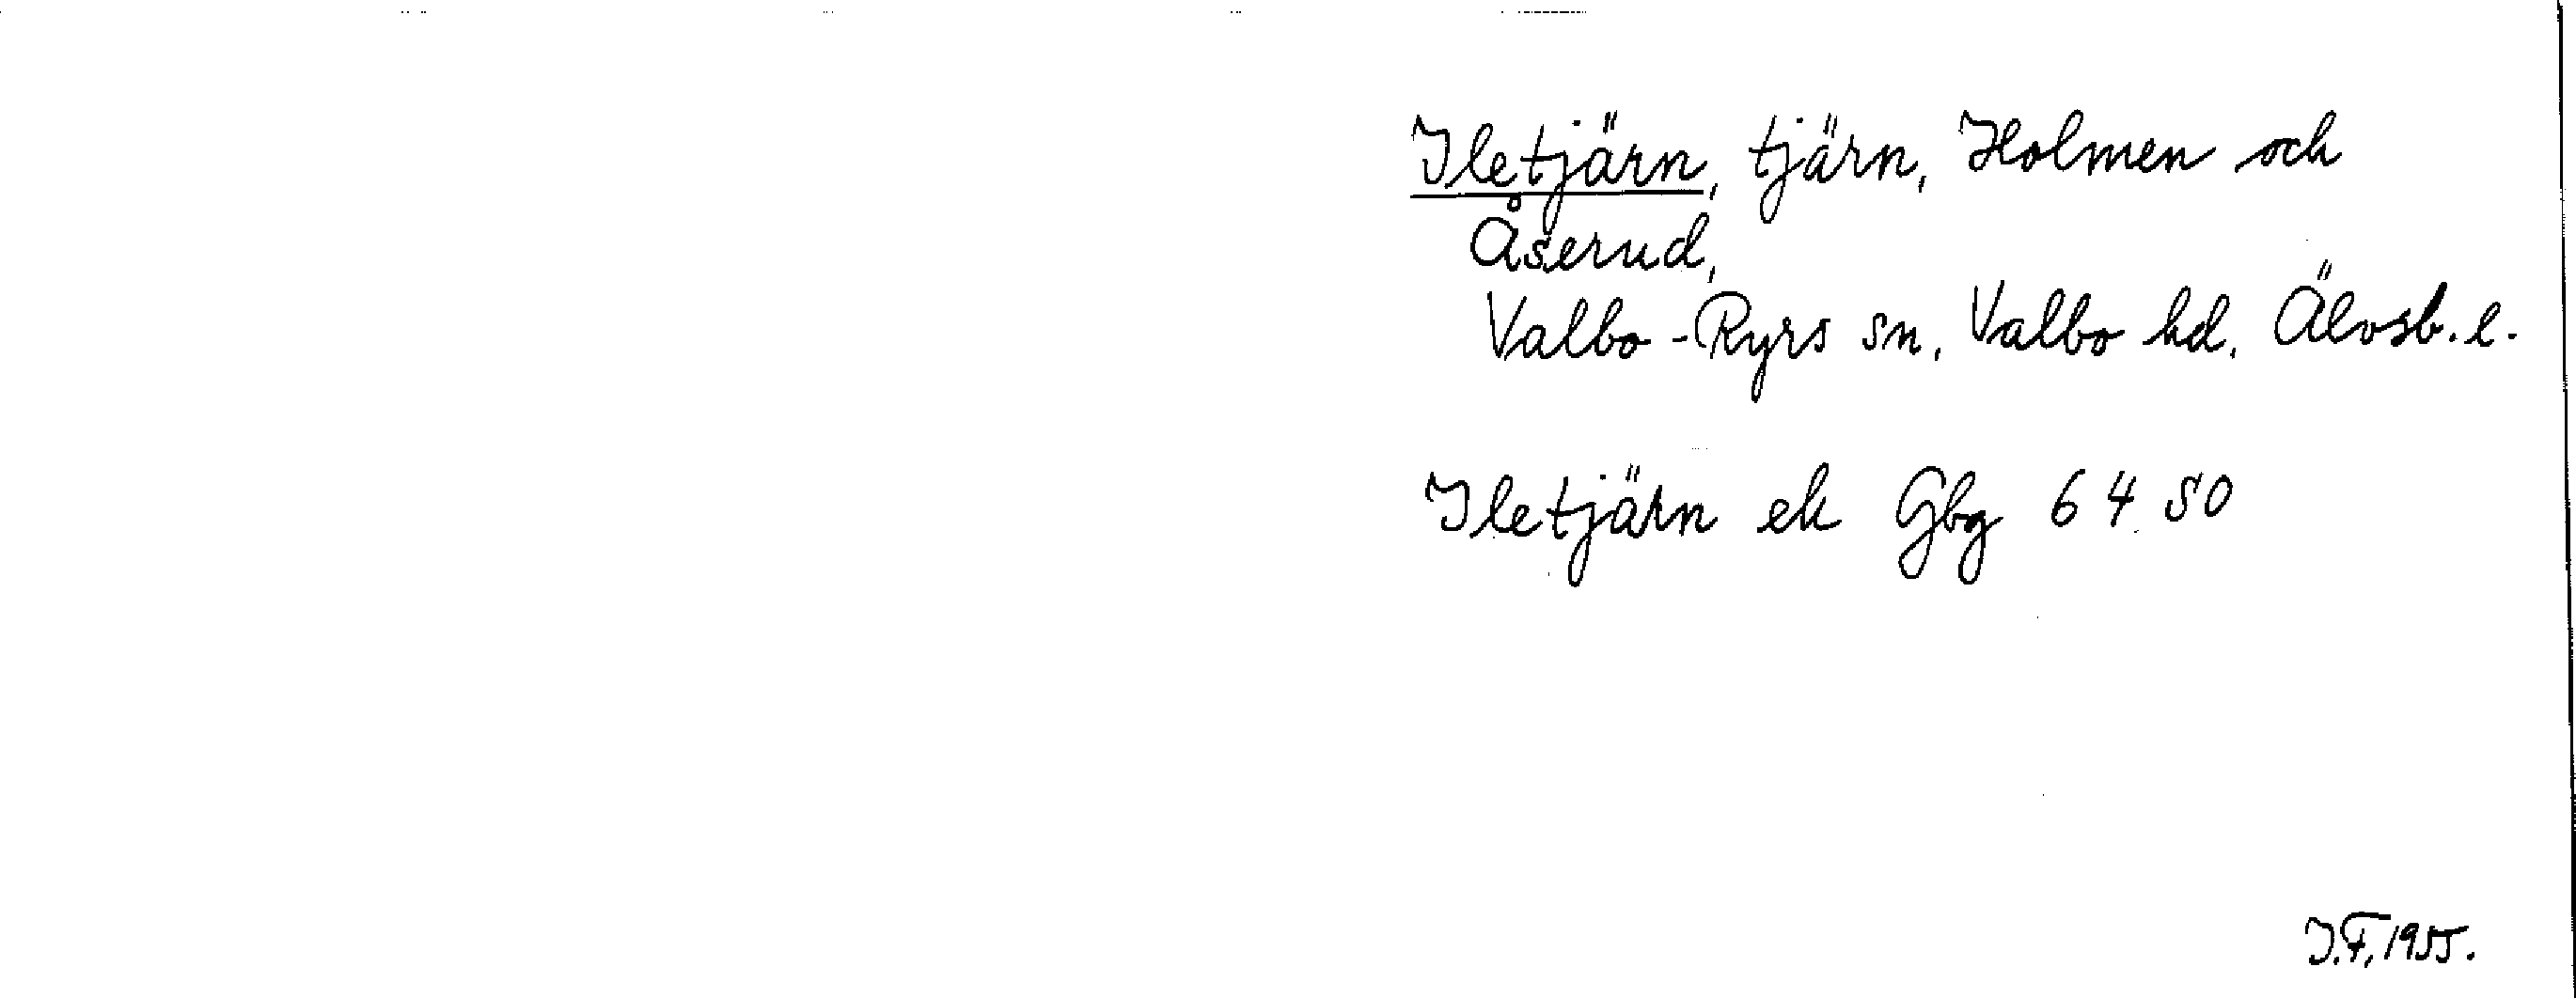 Iletjärn, tjärn, Holmen och
Åserud,
Valbo-Ryrs sn, Valbo hd, Älvsb. l.
Iletjärn ek Gbg 64 SO
I.F, 1955.